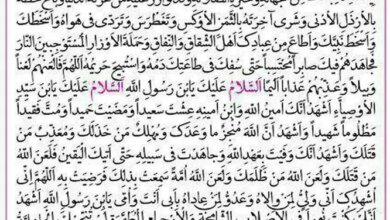 بِالأَرْذَلِ الأَدْنى وَشَرى آخِرَتَهُ بِالثَّمَنِ الأَوْكَسِ وَتَغَطْرَسَ وَتَرَدّى فِي هَواهُ وَأَسْخَطَكَ
وَأَسْخَطَ نَبِيَّكَ وَأَطاعَ مِنْ عِبادِكَ أَهْلَ الشِّقاقِ وَالنِّفاقِ وَحَمَلَةَ الأَوْزارِ المُسْتَوْجِبِينَ النّارَ
فَجاهَدَهُمْ فِيكَ صابِراً مُحْتَسِباً حَتّى سُفِكَ فِي طاعَتِكَ دَمُهُ وَاسْتُبِيحَ حَرِيمُهُ اللّهُمَّ فَالْعَنْهُمْ لَعْناً
وَبِيلاً وَعَذِّبْهُمْ عَذاباً أَلِيماً السَّلامُ عَلَيْكَ يَابْنَ رَسُولِ اللهِ السَّلامُ عَلَيْكَ يَابْنَ سَيِّدِ
الأَوْصِياءِ أَشْهَدُ أَنَّكَ أَمِينُ اللهِ وَابْنُ أَمِينِهِ عِشْتَ سَعِيداً وَمَضَيْتَ حَمِيداً وَمُتَّ فَقِيداً
مَظْلُوماً شَهِيداً وَأَشْهَدُ أَنَّ اللهَ مُنْجِزٌ ما وَعَدَكَ وَمُهْلِكٌ مَنْ خَذَلَكَ وَمُعَذِّبٌ مَنْ
قَتَلَكَ وَأَشْهَدُ أَنَّكَ وَفَيْتَ بِعَهْدِ اللهِ وَجاهَدْتَ فِي سَبِيلِهِ حَتّى أَتَيكَ اليَقِينُ فَلَعَنَ اللهُ
مَنْ قَتَلَكَ وَلَعَنَ اللهُ مَنْ ظَلَمَكَ وَلَعَنَ اللهُ أُمَّةً سَمِعَتْ بِذلِكَ فَرَضِيَتْ بِهِ اللّهُمَّ إِنِّي
أُشْهِدُكَ أَنِّي وَلِيٌّ لِمَنْ والاهُ وَعَدُوٌّ لِمَنْ عاداهُ بِأَبِي أَنْتَ وَأُمِّي يَابْنَ رَسُولِ اللهِ أَشْهَدُ